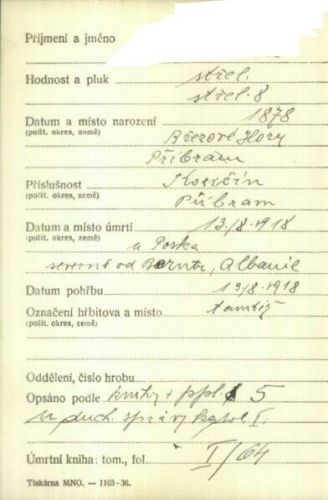 Příjmení a jméno
Hodnost a pluk střel.
střel. 8
Datum a místo narození 1878
(polit. okres, země) Březové Hory
Příbram
Příslušnost Kozičín
(polit. okres, země) Příbram
Datum a místo úmrtí 13/8 1918
(polit. okres, země) u Poska
severně od Berntz, Albanie
Datum pohřbu 13/8 1918
Označení hřbitova a místo tamtéž
(polit. okres, země)
Oddělení, číslo hrobu
Opsáno podle knihy + ppl. 5
duch. správy
Úmrtní kniha: tom., fol. I/64
Tiskárna MNO. — 1163-36.